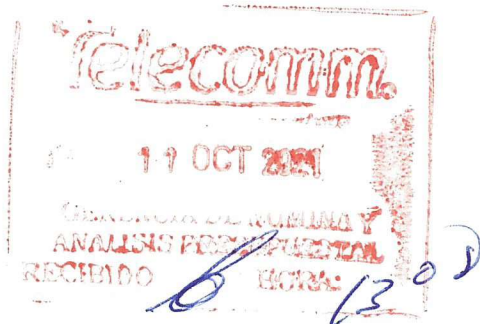 Telecomm.
11 OCT 2021
GERENCIA DE NOMINA Y
ANALISIS PRESUPUESTAL
RECIBIDO HORA: 13 08